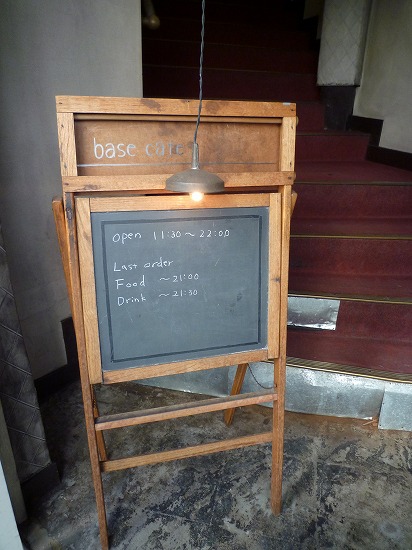 base cafe
open 11:30～22:00
Last order
Food ～21:00
Drink ～21:30